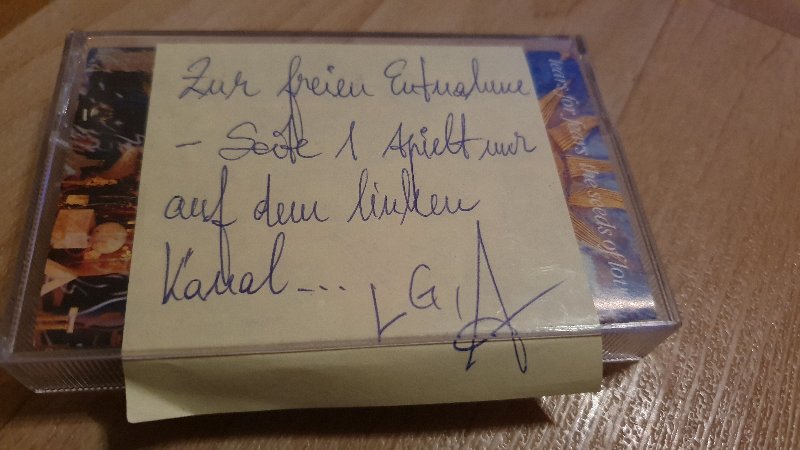 Zur freien Entnahme
- Seite 1 spielt nur
auf dem linken
Kanal... LG,
tears for fears the seeds of love